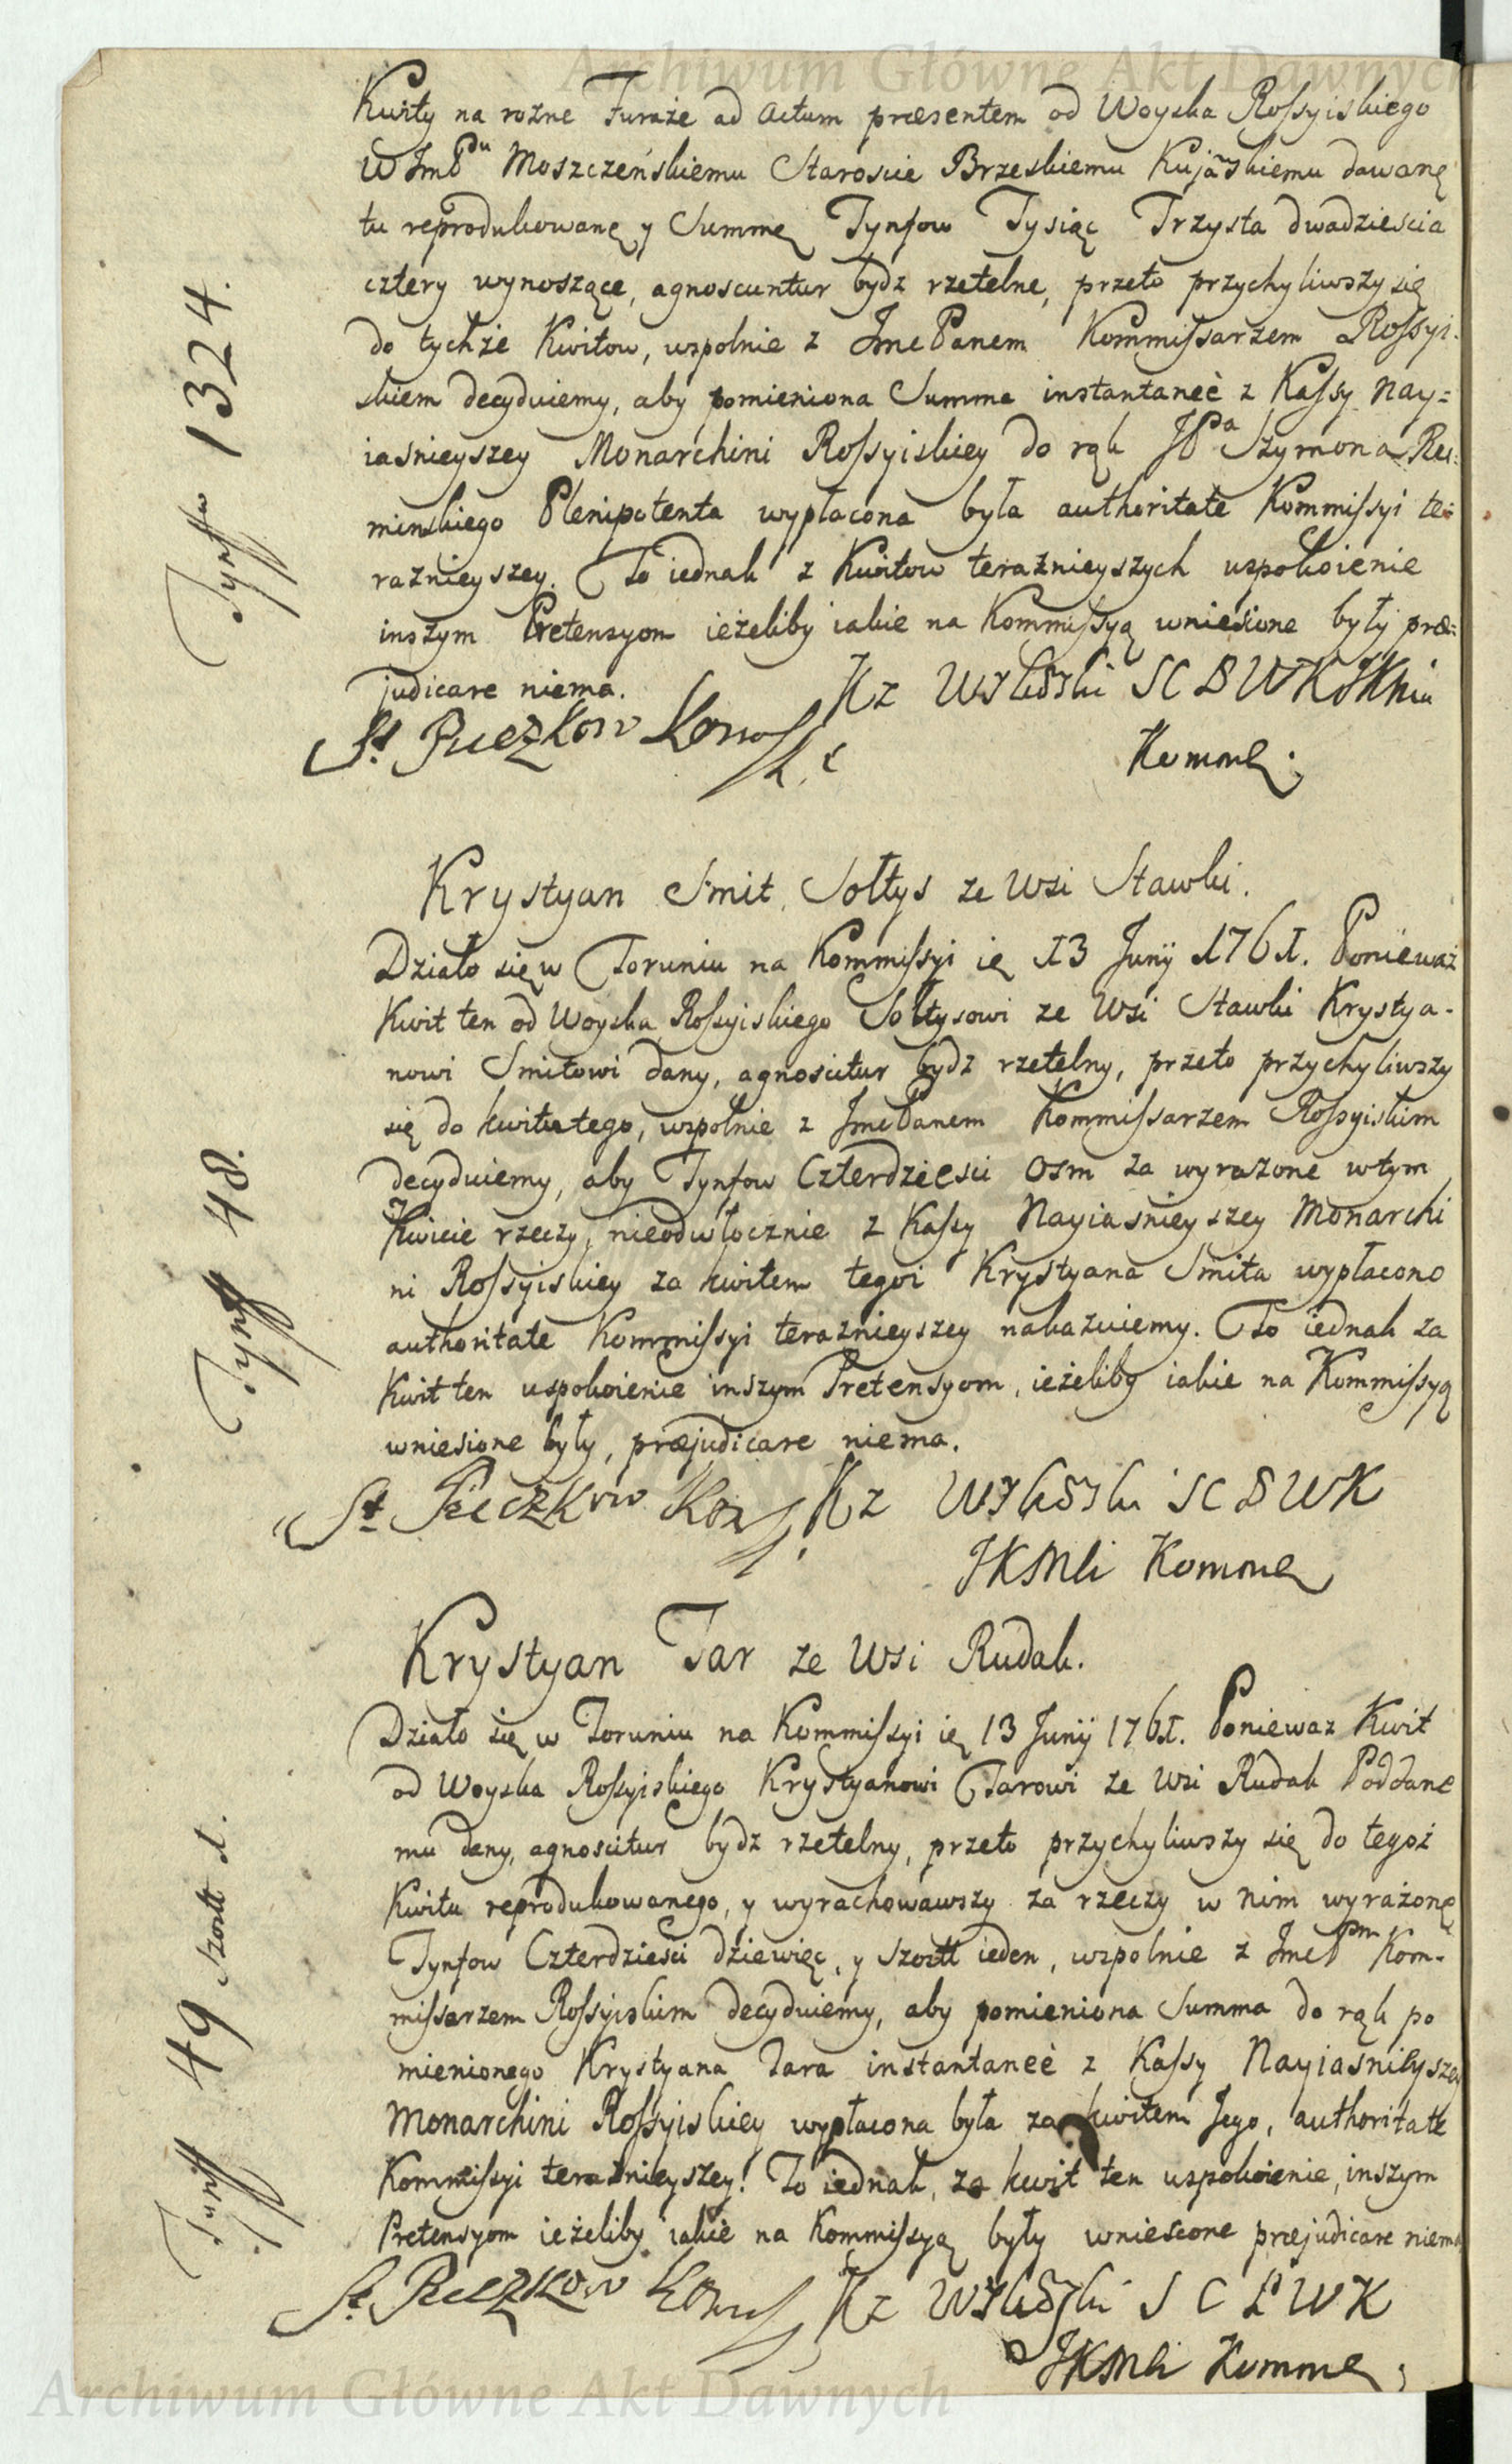 Archiwum Główne Akt Dawnych
Kwity na rozne Furaże ad actum præsentem od Woyska Rossyiskiego
WJmPdu Moszczeńskiemu Staroscie Brzeskiemu Kujaskiemu dawane
tu reprodukowanę y Summę Tynfow Tysiąc Trzysta dwadzieścia
cztery wynoszące, agnoscuntur bydz rzetelne, przeto przychyliwszy się
do tychże Kwitow, wspolnie z JmcPanem Kommissarzem Rossyi-
skiem decyduiemy, aby pomieniona Summa instantaneè z Kassy Nay=
iasnieyszey Monarchini Rossyiskiey do rąk JPa Szymona Re
minskiego Plenipotenta wypłacona była authoritate Kommissyi te=
raznieyszey. To iednak z Kwitow teraznieyszych uspokoienie
inszym Pretensyom ieżeliby iakie na Kommissyą wniesione były præ=
judicare niema.
Tynffow 1324.
St Puczkow Kom
Kz SCBWK JKMci
Komme.
Krystyan Smit Sołtys ze Wsi Stawki.
Działo się w Toruniu na Kommissyi ię 13 Junÿ 1761. Ponieważ
Kwit ten od Woyska Rossyiskiego Sołtysowi ze Wsi Stawki Krystya-
nowi Smitowi dany, agnoscitur bydz rzetelny, przeto przychyliwszy
się do kwitu tego, wspolnie z JmcPanem Kommissarzem Rossyiskim
decyduiemy, aby Tynfow Czterdziesci Osm za wyrazone w tym
Kwicie rzeczy, nieodwłocznie z Kassy Nayiasnieyszey Monarchi
ni Rossyiskiey za kwitem tegoi Krystyana Smita wypłacono
authoritate Kommissyi teraznieyszey nakazuiemy. To iednak za
Kwit ten uspokoienie inszym Pretensyom, ieżeliby iakie na Kommissyą
wniesione były, præjudicare niema.
Tynff 48.
St Puczkow Kom
Kz SCBWK
JKMci Komme
Krystyan Tar ze Wsi Rudak.
Działo się w Toruniu na Kommissyi ię 13 Junÿ 1761. Poniewaz Kwit
od Woyska Rossyiskiego Krystyanowi Tarowi ze Wsi Rudak Poddane
mu dany, agnoscitur bydz rzetelny, przeto przychyliwszy się do tegoż
Kwitu reprodukowanego, y wyrachowawszy za rzeczy w nim wyrażonę
Tynfow Czterdziesci dziewięc, y szostk ieden, wspolnie z JmcPm Kom-
missarzem Rossyiskim decyduiemy, aby pomieniona Summa do rąk po
mienionego Krystyana Tara instantaneè z Kassy Nayiasnieyszey
Monarchini Rossyiskiey wypłacona była za kwitem Jego, authoritate
Kommissyi teraznieyszey. To iednak, za kwit ten uspokoienie, inszym
Pretensyom ieżeliby iakie na Kommissyą były wniesione præjudicare niema
Tynff 49 szost 1.
St Puczkow Kom
Kz SCBWK
JKMci Komme
Archiwum Główne Akt Dawnych